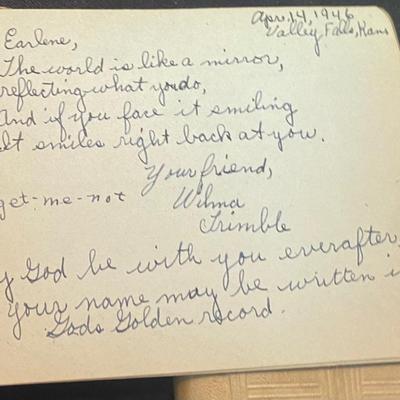 Apr. 14, 1946
Valley, Falls, Kans
Earlene,
The world is like a mirror,
reflecting what you do,
And if you face it smiling
It smiles right back at you.
Your friend,
get-me-not
Wilma
Trimble
y God be with you everafter,
your name may be written i
Gods Golden record.